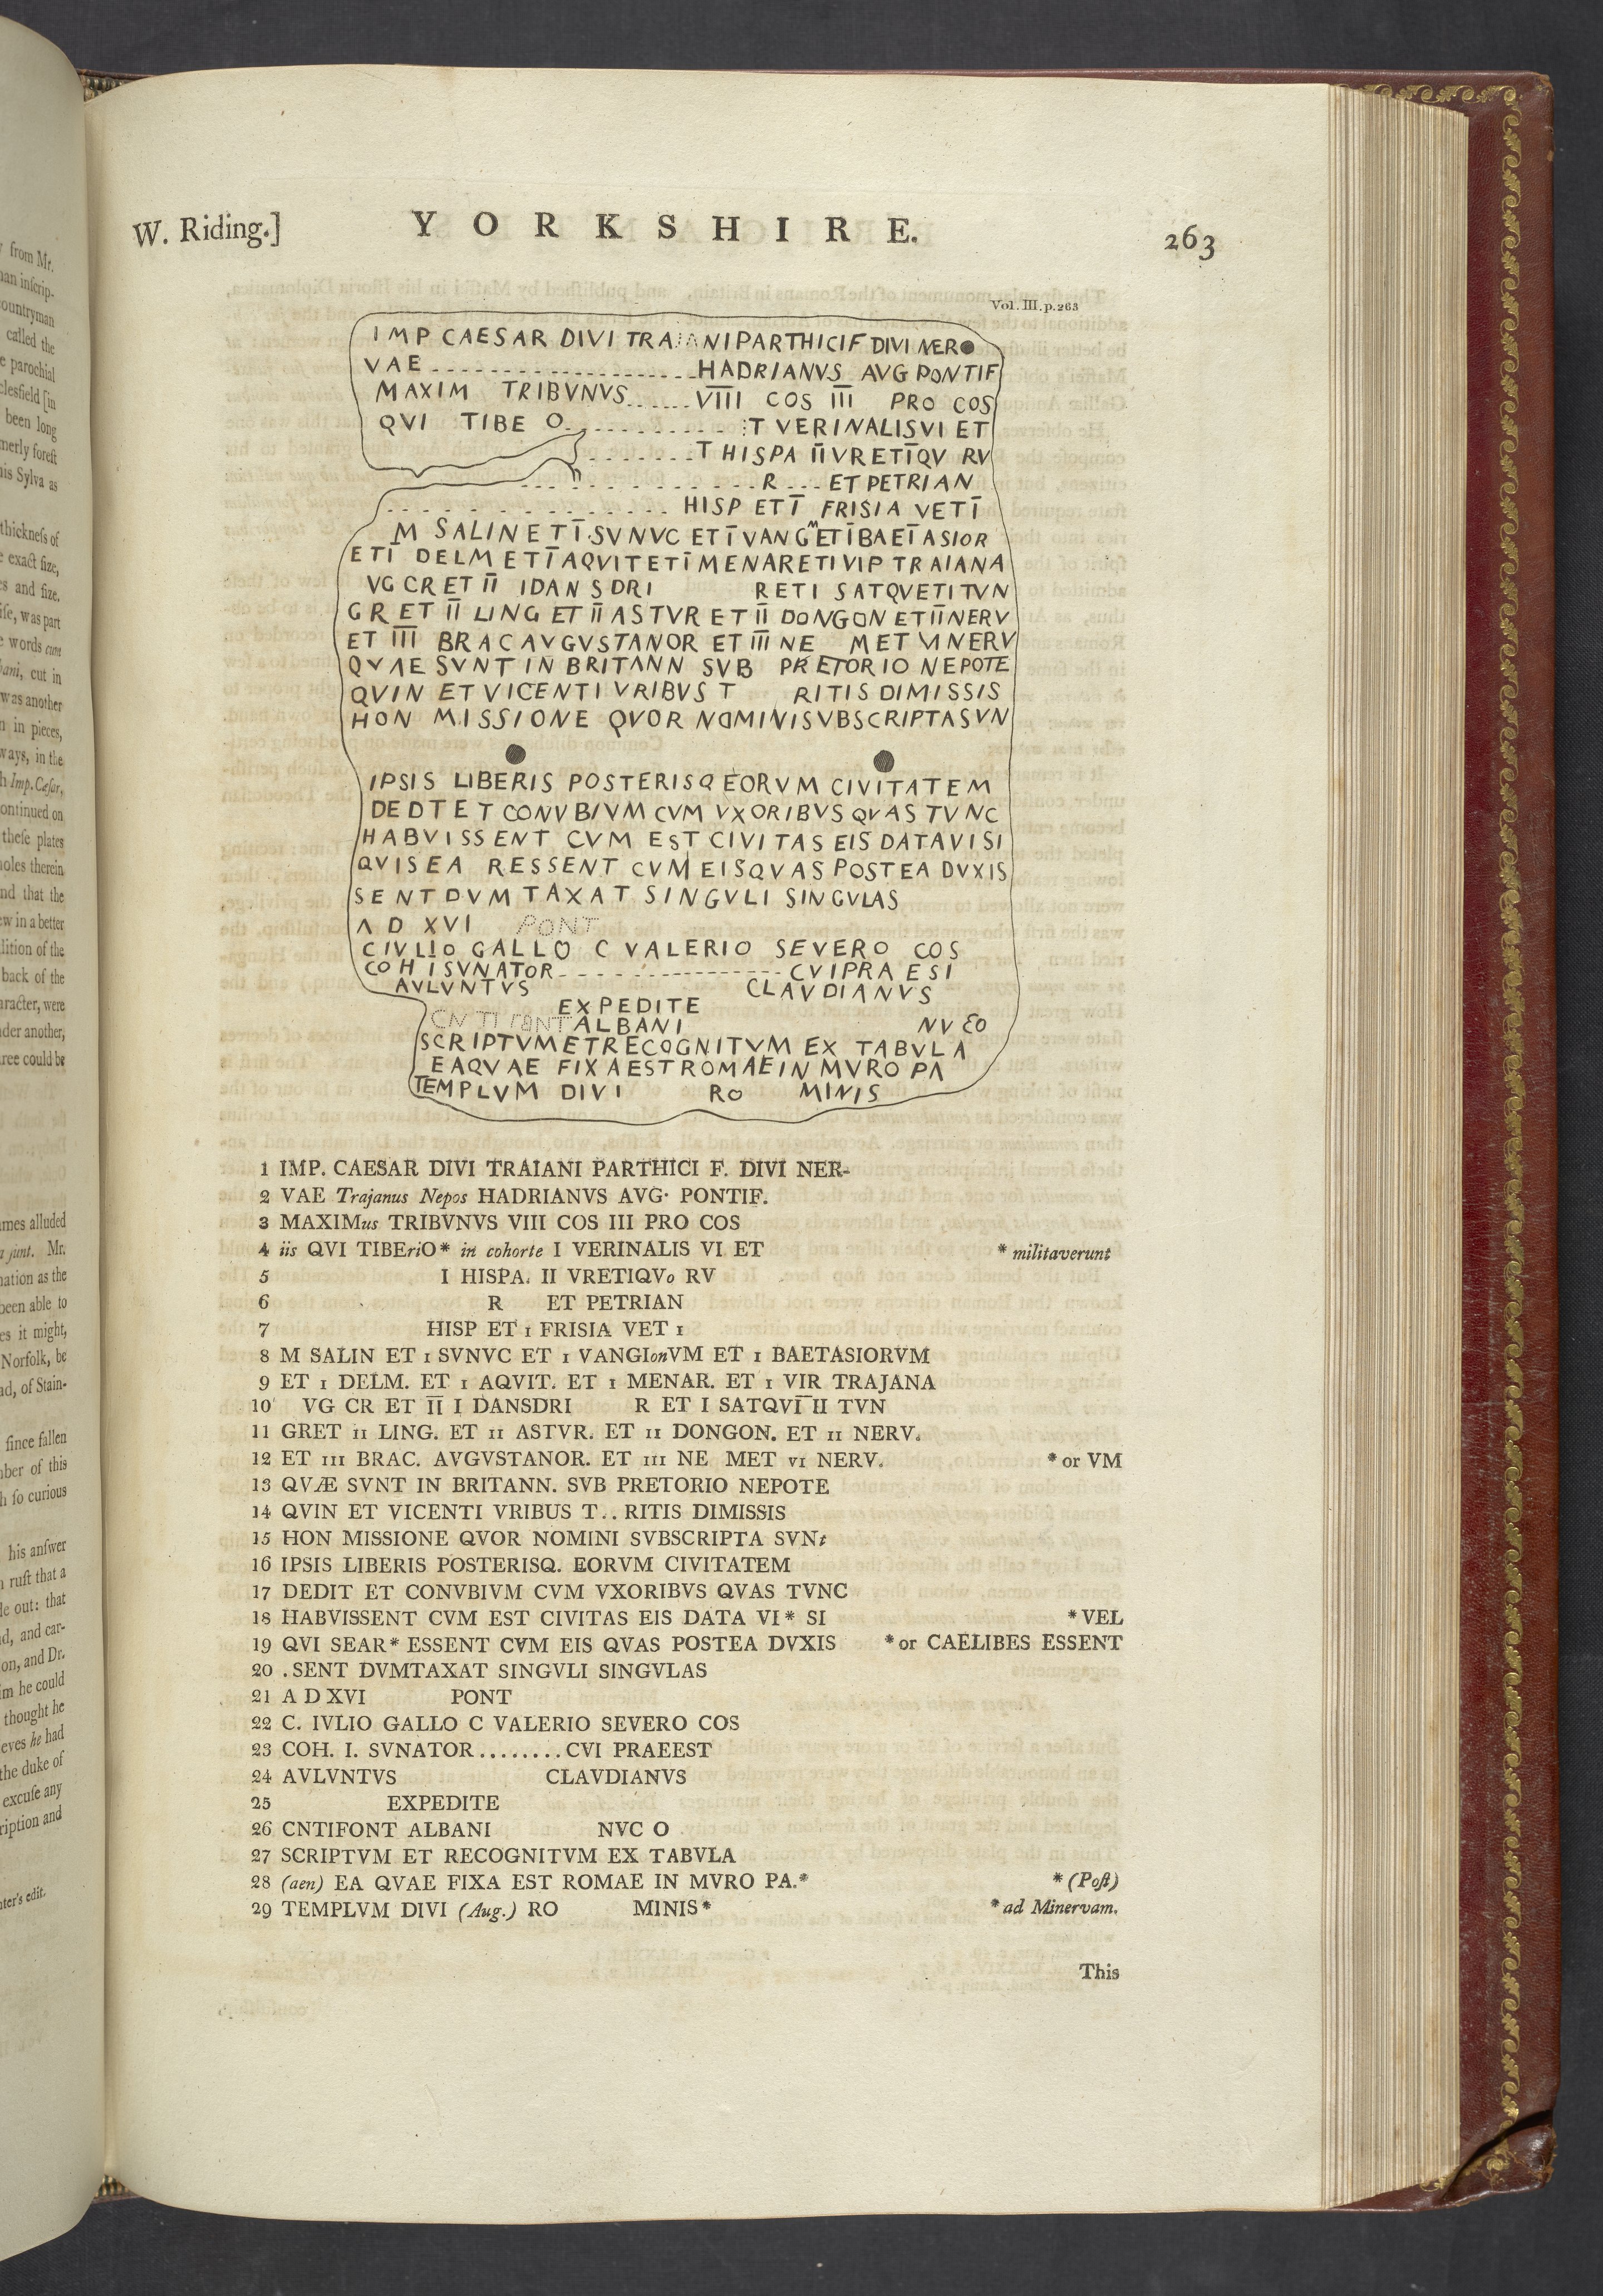 W. Riding.] YORKSHIRE. 263
Vol. III. p. 263
IMP CAESAR DIVI TRAIANI PARTHICI F DIVI NER
VAE HADRIANVS AVG PONTIF
MAXIM TRIBVNVS VIII COS III PRO COS
QVI TIBE O T VERINALISVI ET
T HISPA II VRETIQV RV
R ET PETRIAN
HISP ET I FRISIA VET I
M SALIN ET I SVNVC ET I VANG M ET I BAET I ASIOR
ET I DELM ET I AQVIT ET I MENARETI VIP TRAIANA
VG CR ET II IDANSDRI RETI SATQVETITVN
GR ET II LING ET II ASTVR ET II DONGON ET II NERV
ET III BRAC AVGVSTANOR ET III NE MET VI NERV
QVAE SVNT IN BRITANN SVB PRETORIO NEPOTE
QVIN ET VICENTI VRIBVS T RITIS DIMISSIS
HON MISSIONE QVOR NOMINISVBSCRIPTASVN
IPSIS LIBERIS POSTERISQ EORVM CIVITATEM
DEDT ET CONVBIVM CVM VXORIBVS QVAS TVNC
HABVISSENT CVM EST CIVITAS EIS DATAVISI
QVISEA RESSENT CVM EISQVAS POSTEA DVXIS
SENT DVM TAXAT SINGVLI SINGVLAS
A D XVI PONT
CIVLIO GALLO C VALERIO SEVERO COS
COH I SVNATOR CVIPRAESI
AVLVNTVS CLAVDIANVS
EXPEDITE
CNTIFONT ALBANI NV
SCRIPTVM ET RECOGNITVM EX TABVLA
EAQVAE FIXAEST ROMAE IN MVRO PA
TEMPLVM DIVI RO MINIS
1 IMP. CAESAR DIVI TRAIANI PARTHICI F. DIVI NER-
2 VAE Trajanus Nepos HADRIANVS AVG. PONTIF.
3 MAXIMus TRIBVNVS VIII COS III PRO COS
4 iis QVI TIBEriO* in cohorte I VERINALIS VI ET * militaverunt
5 I HISPA. II VRETIQVo RV
6 R ET PETRIAN
7 HISP ET I FRISIA VET I
8 M SALIN ET I SVNVC ET I VANGIonVM ET I BAETASIORVM
9 ET I DELM. ET I AQVIT. ET I MENAR. ET I VIR TRAJANA
10 VG CR ET II I DANSDRI R ET I SATQVI II TVN
11 GRET II LING. ET II ASTVR. ET II DONGON. ET II NERV.
12 ET III BRAC. AVGVSTANOR. ET III NE MET VI NERV. * or VM
13 QVÆ SVNT IN BRITANN. SVB PRETORIO NEPOTE
14 QVIN ET VICENTI VRIBUS T.. RITIS DIMISSIS
15 HON MISSIONE QVOR NOMINI SVBSCRIPTA SVNt
16 IPSIS LIBERIS POSTERISQ. EORVM CIVITATEM
17 DEDIT ET CONVBIVM CVM VXORIBVS QVAS TVNC
18 HABVISSENT CVM EST CIVITAS EIS DATA VI* SI * VEL
19 QVI SEAR* ESSENT CVM EIS QVAS POSTEA DVXIS * or CAELIBES ESSENT
20 .SENT DVMTAXAT SINGVLI SINGVLAS
21 A D XVI PONT
22 C. IVLIO GALLO C VALERIO SEVERO COS
23 COH. I. SVNATOR........CVI PRAEEST
24 AVLVNTVS CLAVDIANVS
25 EXPEDITE
26 CNTIFONT ALBANI NVC O
27 SCRIPTVM ET RECOGNITVM EX TABVLA
28 (aen) EA QVAE FIXA EST ROMAE IN MVRO PA.* * (Post)
29 TEMPLVM DIVI (Aug.) RO MINIS* * ad Minervam.
This